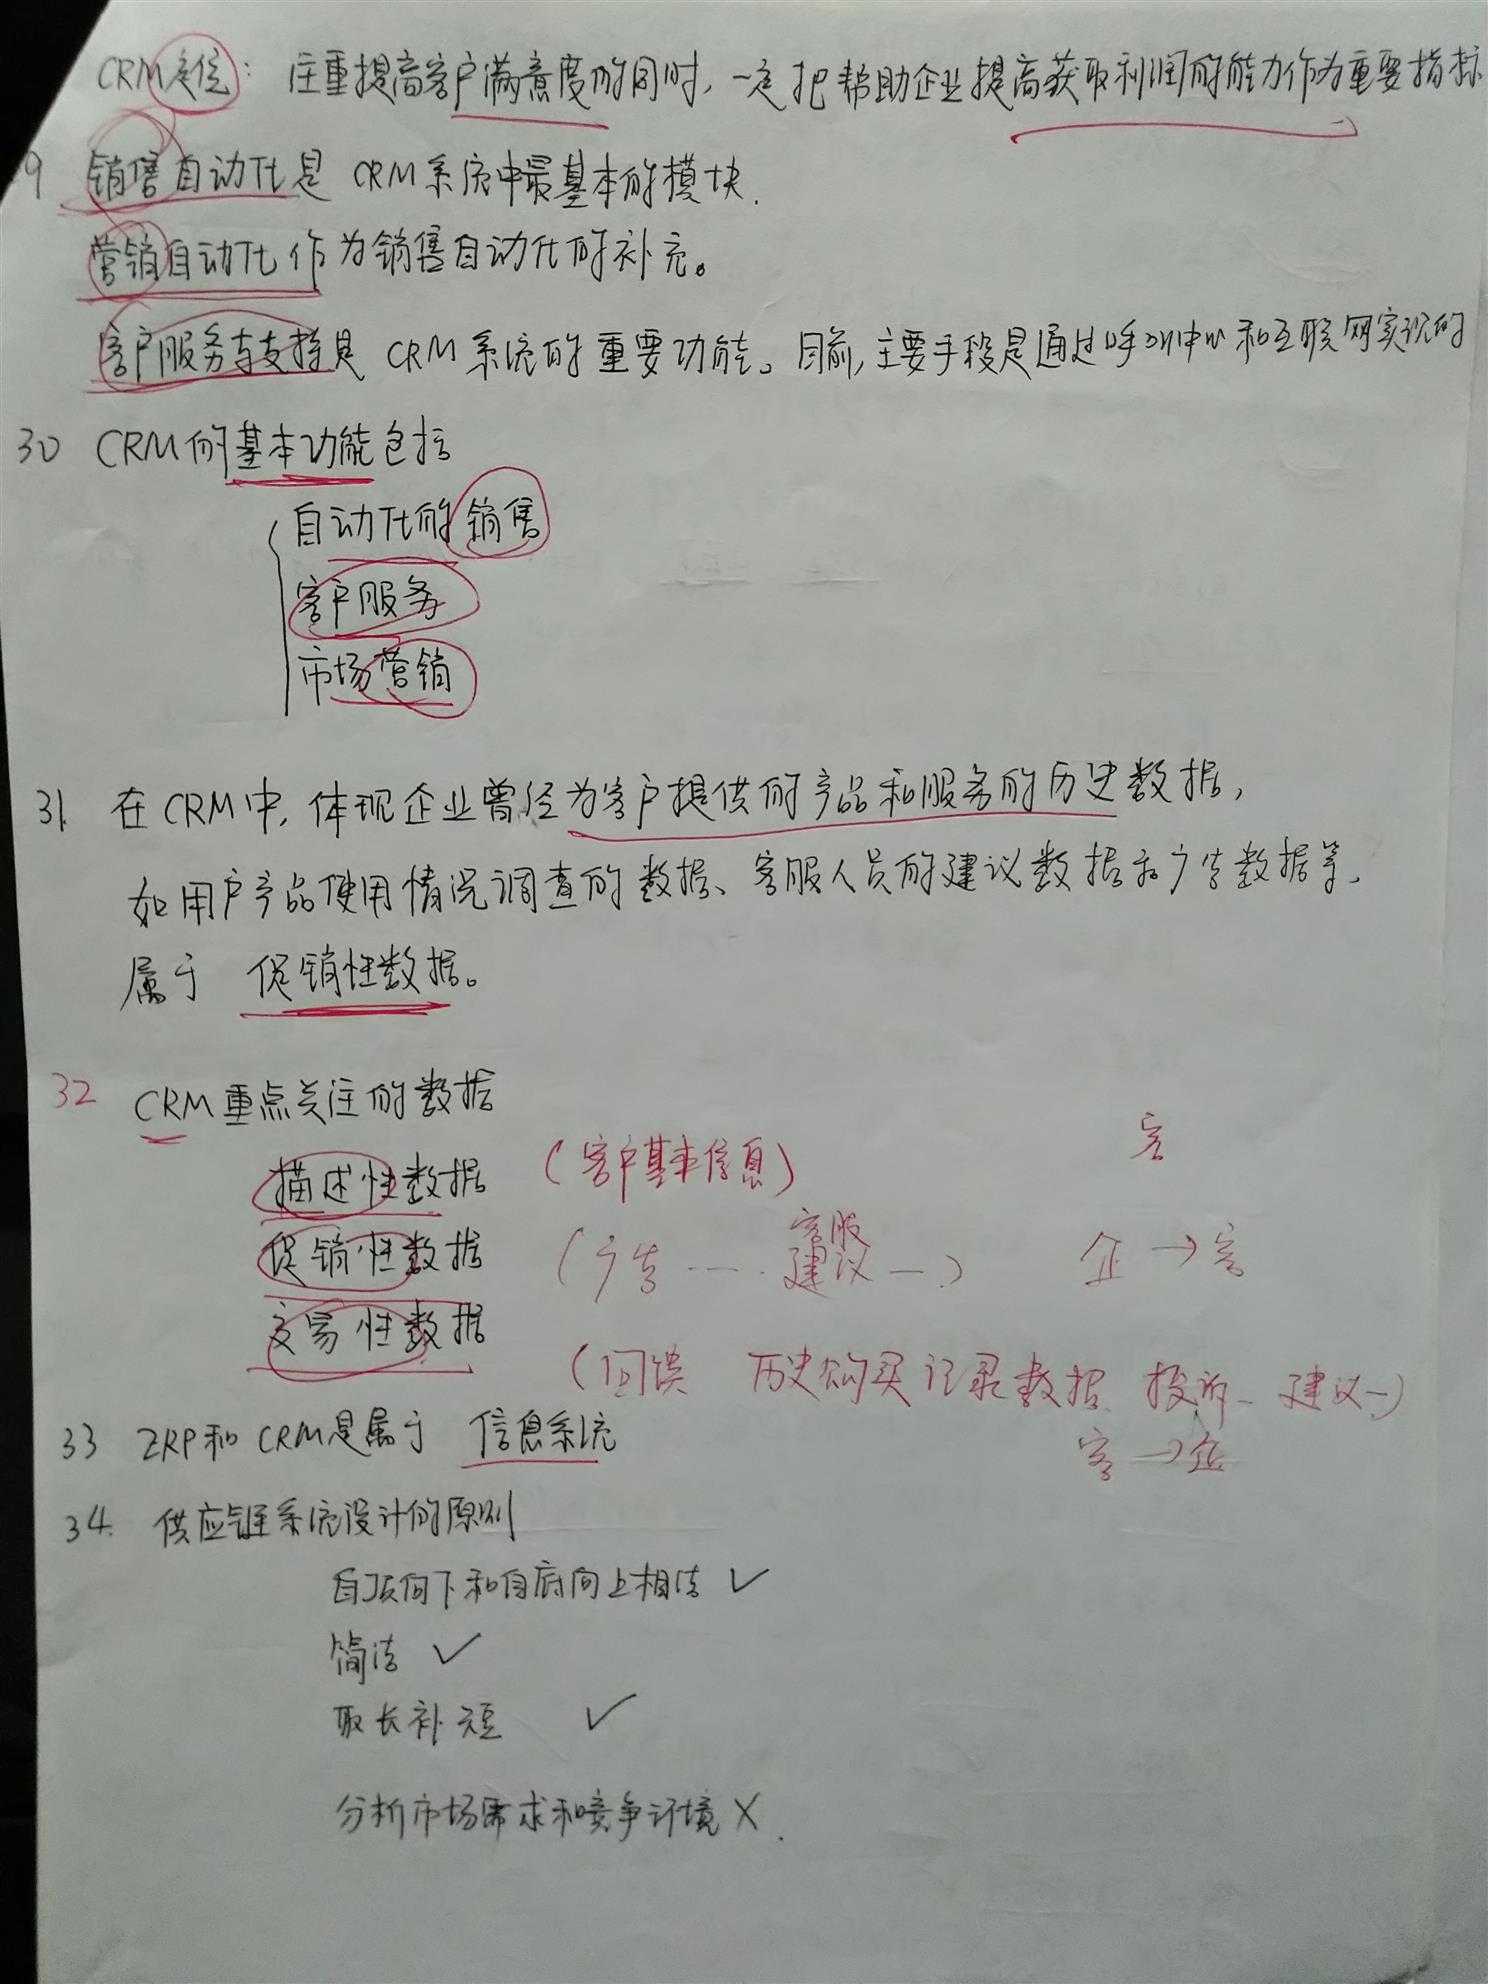 CRM定位：注重提高客户满意度的同时，一定把帮助企业提高获取利润的能力作为重要指标
9 销售自动化是 CRM系统中最基本的模块.
营销自动化作为销售自动化的补充。
客户服务与支持是 CRM系统的重要功能。目前,主要手段是通过呼叫中心和互联网实现的
30 CRM的基本功能包括
自动化的销售
客户服务
市场营销
31 在CRM中,体现企业曾经为客户提供的产品和服务的历史数据,
如用户产品使用情况调查的数据、客服人员的建议数据和广告数据等,
属于 促销性数据。
32 CRM重点关注的数据
客
描述性数据 (客户基本信息)
客服
促销性数据 (广告 ···· 建议 —) 企→客
交易性数据 (回馈 历史购买记录数据 投诉- 建议-)
33 ZRP和CRM是属于 信息系统
客→企
34. 供应链系统设计的原则
自顶向下和自底向上相结 ✓
简洁 ✓
取长补短 ✓
分析市场需求和竞争环境 X.